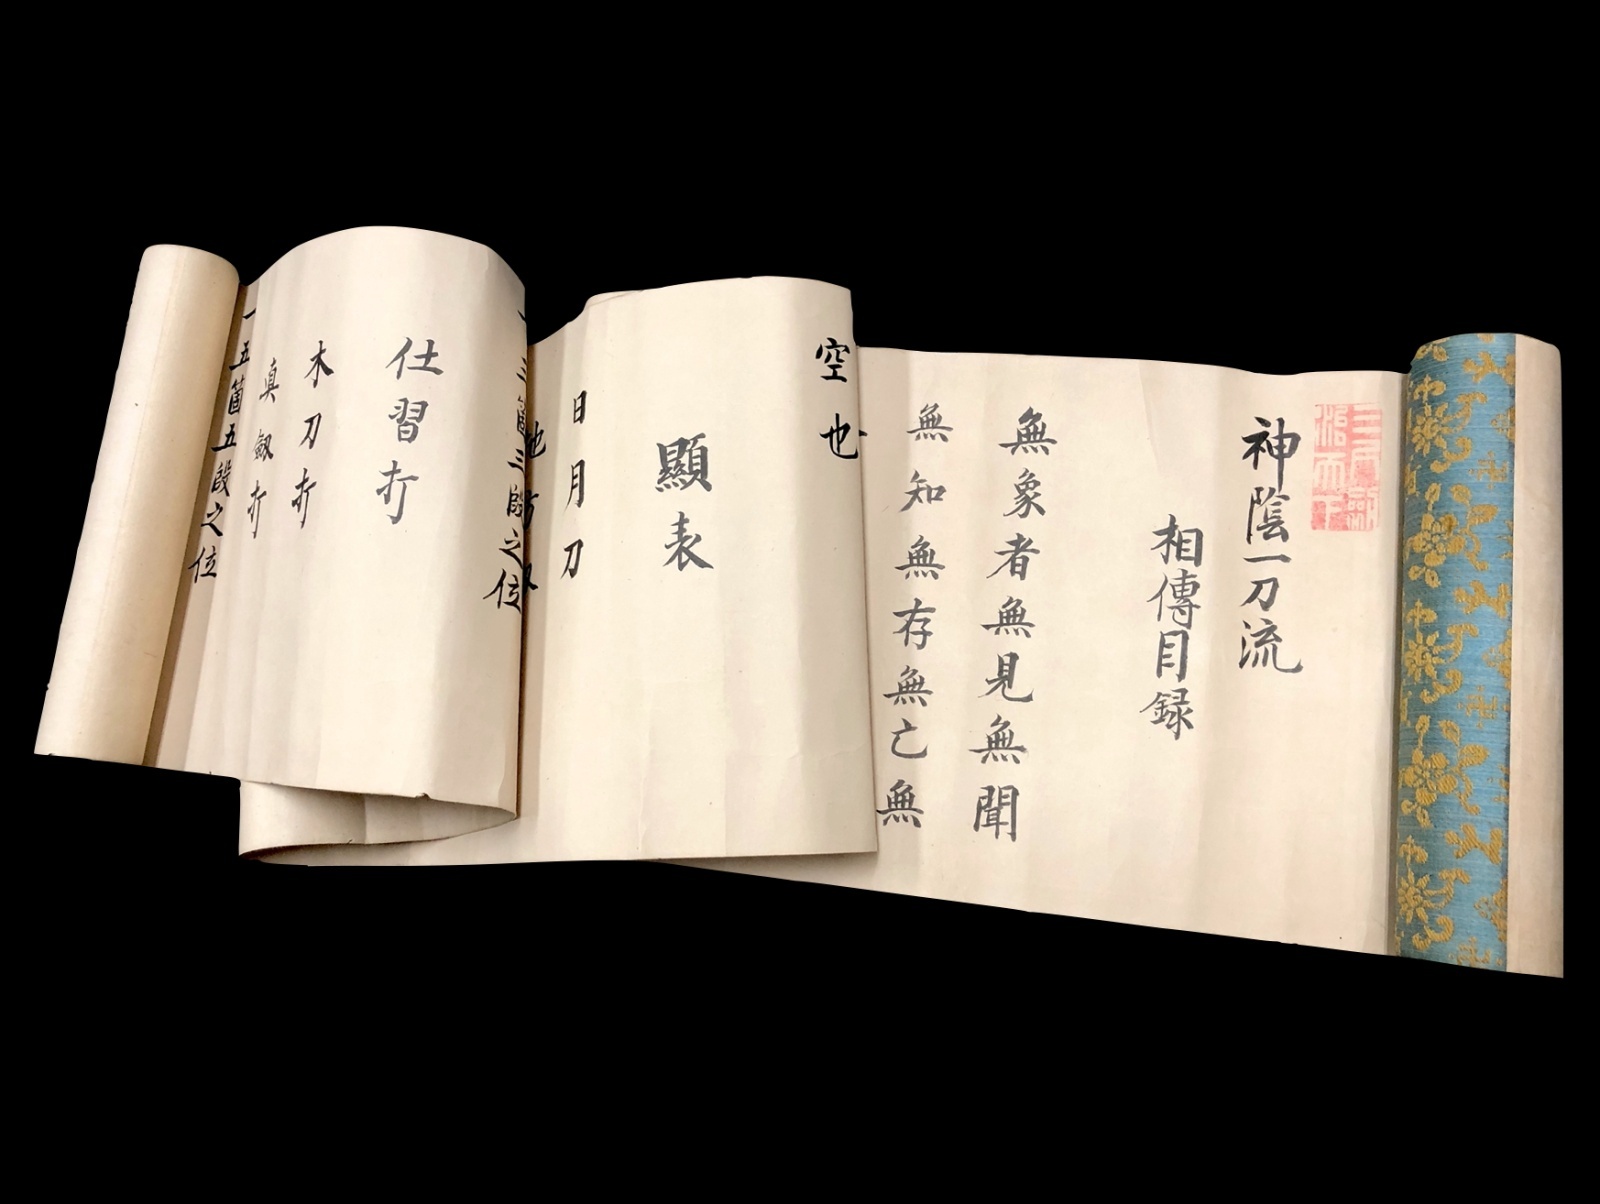 神陰一刀流
相傳目録
無象者無見無聞
無知無存無亡無
空也
顯表
日月刀
一三箇三段之位
仕習打
木刀打
眞劔打
一五箇五段之位